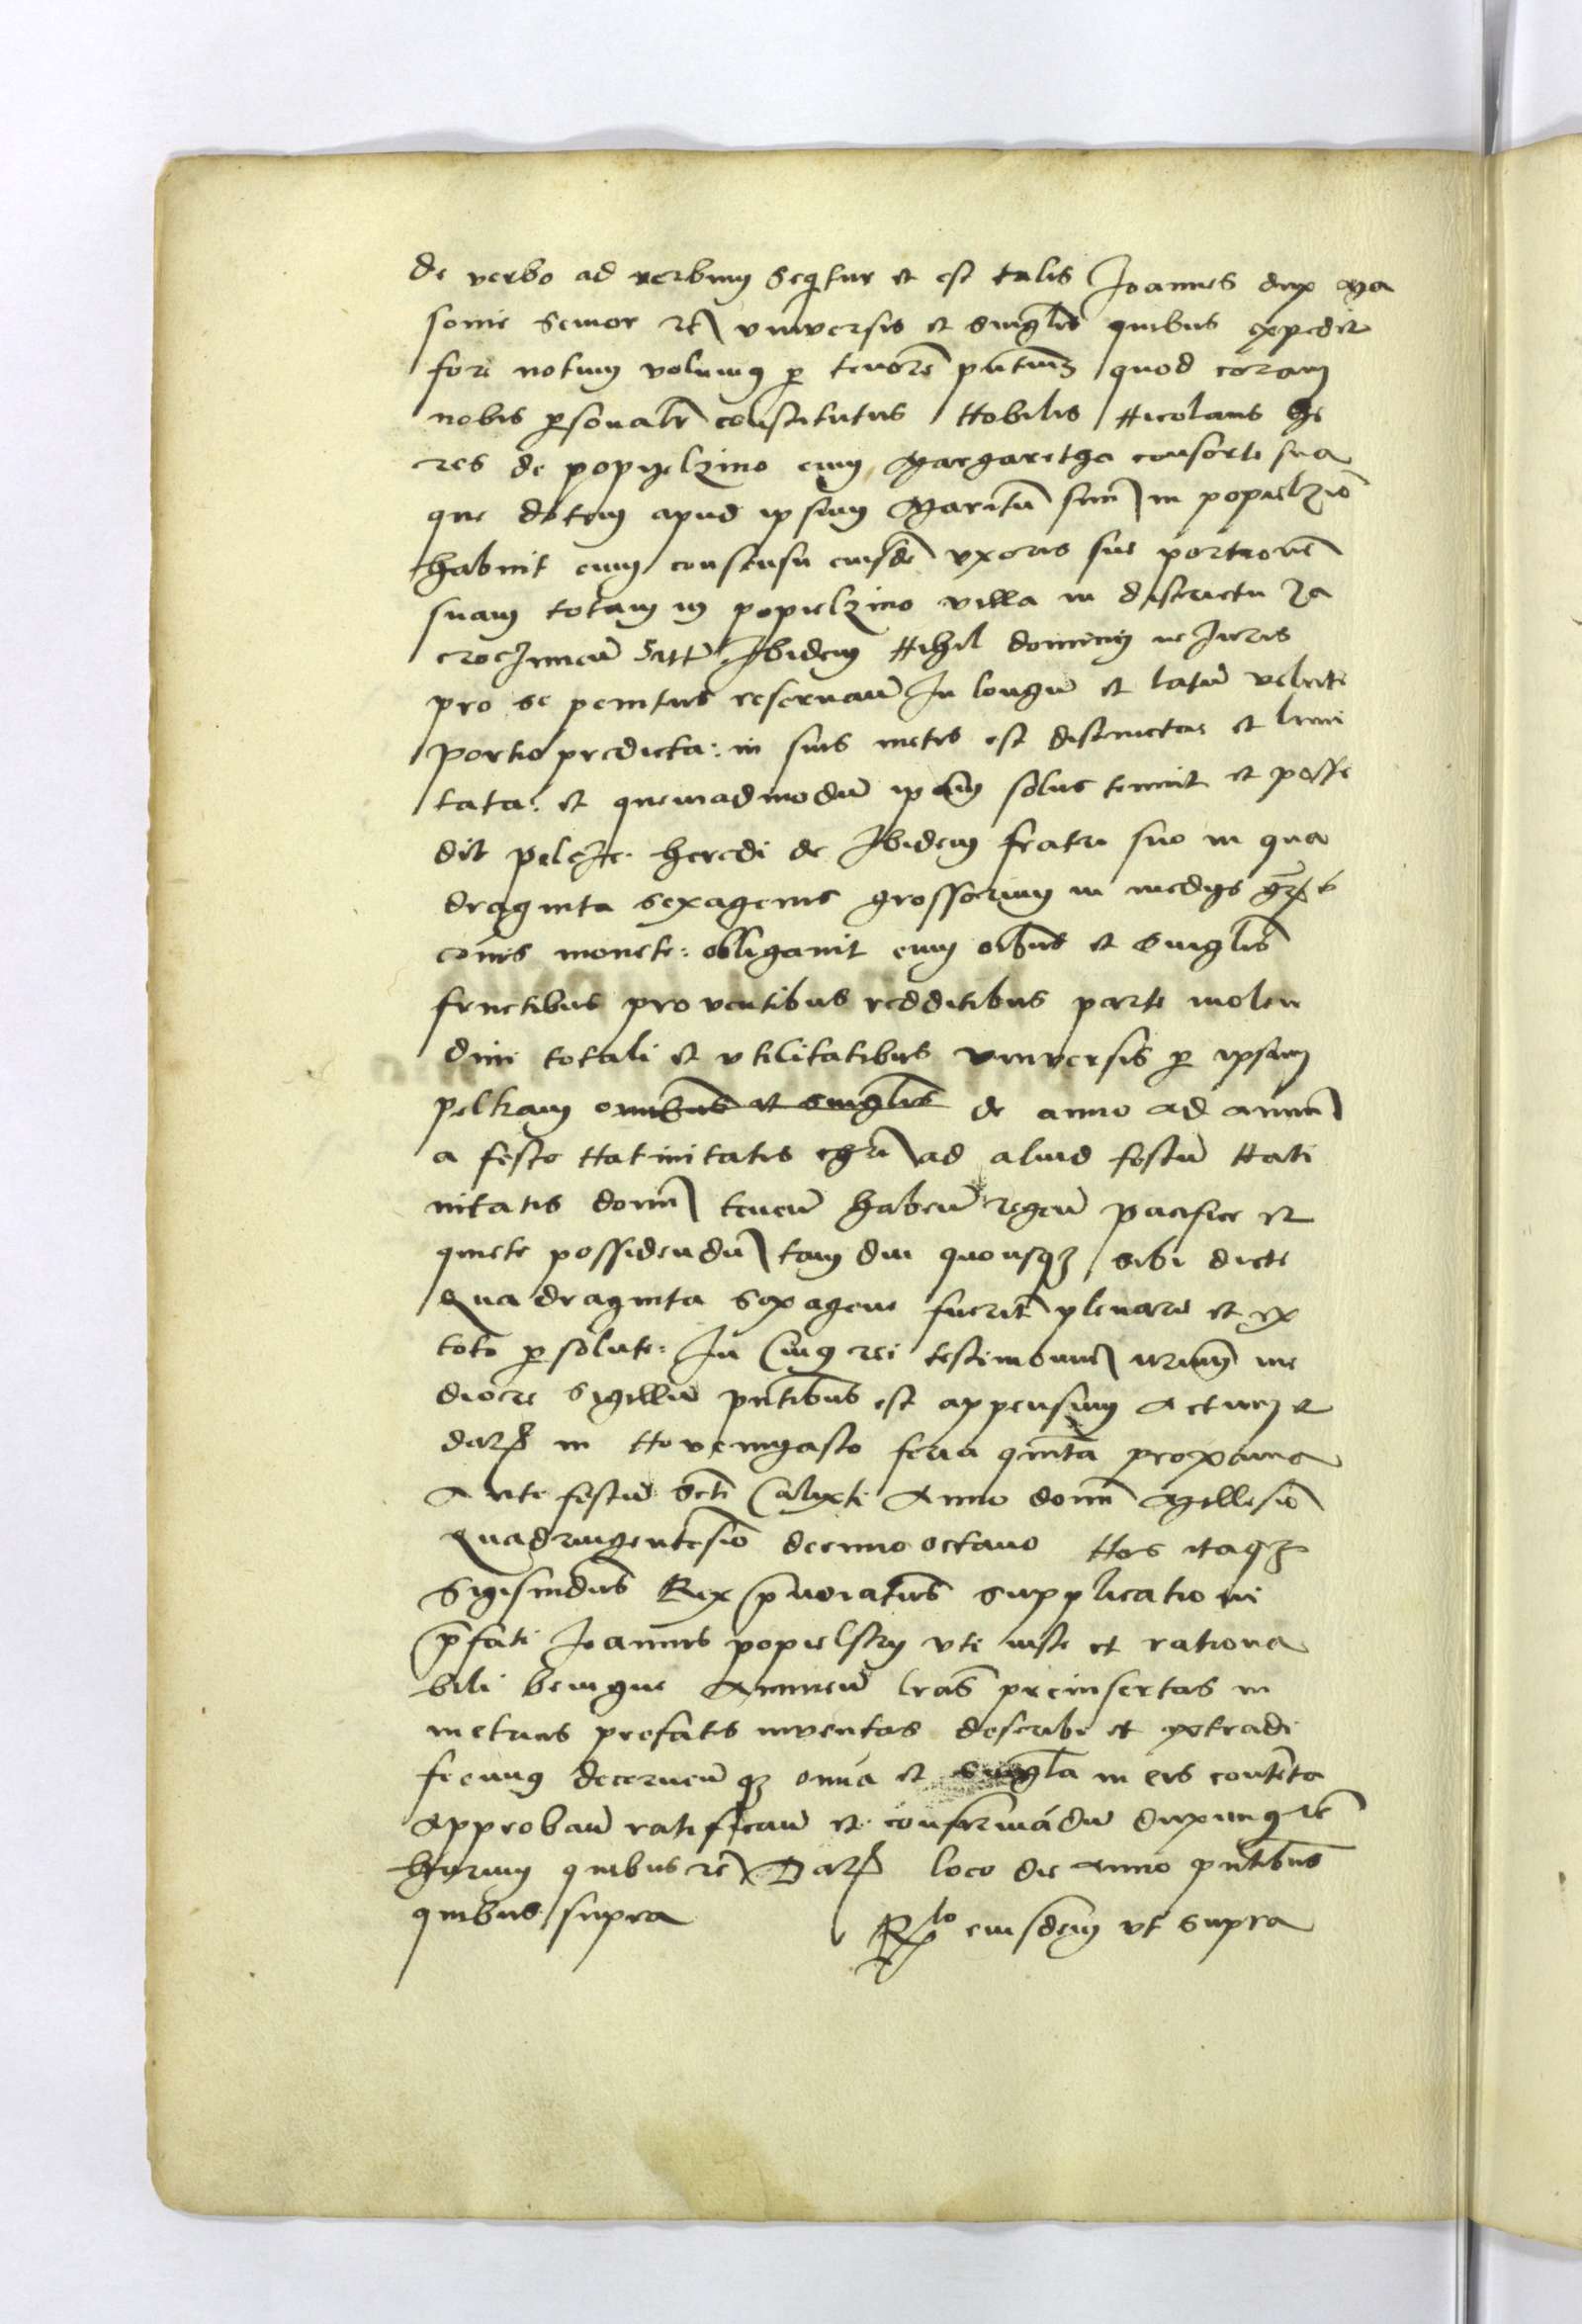 de verbo ad verbum Seqitur et est talis Joannes dux Ma
sovie Senior rc̃ universis et singlis quibus expedit
fore notum volumus p tenorẽ pñtium quod coram
nobis psonalr̃ constitutus Nobilis Nicolaus he
res de popyelzino cum Margaretha consorte sua
que dotem apud ipsum Maritũ suũ in popielziõ
habuit cum consensu eiusdẽ uxoris sue portionẽ
suam totam in popielzino villa in districtu Za
croczimeñ sitã Ibidem Nihil dominij ne Juris
pro se penitus reservañ In longũ et latũ velut
portio predicta: in suis metis est distincta et limi
tata: et quemadmodũ ipam solus tenuit et posse
dit heredi de Ibidem fratri suo in qua
draginta sexagenis grossorum in medijs
cõnis monete: obligavit cum oĩbus et singlis
fructibus proventibus redditibus parte molen
dini totali et utilitatibus universis p ipsum
pelkam omnibus et singlis de anno ad annũ
a festo Nativitatis chri ad aliud festũ Nati
vitatis domĩ teneñ habeñ regeñ pacifice et
quiete possidendũ tam diu quousqz sibi dicte
Quadraginta sexagene fuerĩt plenarie et ex
toto psolute: In Cuius rei testimoniũ nrum me
diocre Sigillũ pñtibus est appensum Actum et
datp in Novomyasto feria quĩta proxima
Ante festũ Scti Calixti Anno domĩ Millesiõ
Quadringentesiõ decimo octavo Nos itaqz
Sigismdus Rex p̃noiatus supplicationi
p̃fati Joannis popielsky uti iuste et rationa
bili benigne Annueñ lr̃as preinsertas in
metricis prefatis inventas describi et extradi
fecimus decerneñ qz oñia et singla in eis contẽta
Approbañ ratificañ et confirmãdũ duximus rc̃
harum quibus rc̃ Datp loco die anno pñtibus
quibus supra
Rlo eiusdem ut supra